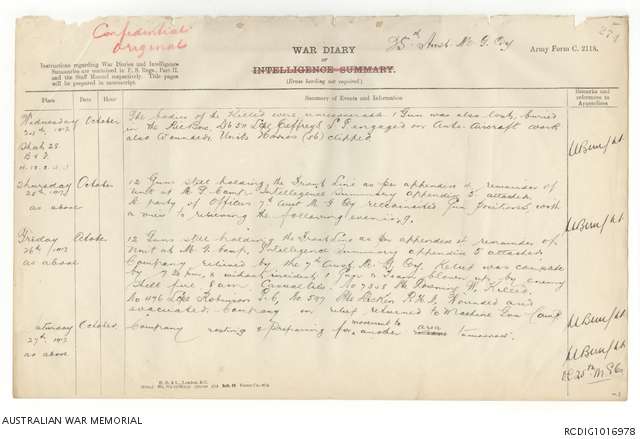 Confidential
Original
25th Aust. M. G. Coy
274
WAR DIARY
OF
INTELLIGENCE SUMMARY.
(Erase heading not required.)
Army Form C. 2118.
Instructions regarding War Diaries and Intelligence
Summaries are contained in F. S. Regs., Part II.
and the Staff Manual respectively. Title pages
will be prepared in manuscript.
Place
Date
Hour
Summary of Events and Information
Remarks and
references to
Appendices
Wednesday October
1917
Sheet 28
The bodies of the Killed were unrecovered 1 Gun was also lost, buried
in the
engaged on Anti-Aircraft work
also Wounded. Units Horses (56) clipped
Thursday October
25th 1917
as above
12 Guns still holding the Front Line as per appendix 4 remainder of
Unit at M. G. Camp. Intelligence summary appendix 5 attached.
A party of Officers 7th Aust M. G. Coy reconnoitred Gun Positions with
a view to relieving the following evening.
Friday October
26th 1917
as above
12 Guns still holding the Front Line as per appendix 4 remainder of
Unit at M. G. Camp, Intelligence summary appendix 5 attached.
Company relieved by the 7th Aust. M. G. Coy Relief was complete
by 7.30 p.m. without incident, 1 Gun & Team blown up by enemy
Shell fire 5 am. Casualties No 7358 Pte W. Killed,
No 476 L/Cpl Robinson No 507 Pte Wounded and
evacuated. Company on relief returned to Machine Gun Camp
Saturday October
27th 1917
as above
Company resting & preparing for movement to another area tomorrow.
25th M.G.Co
AUSTRALIAN WAR MEMORIAL
RCDIG1016978